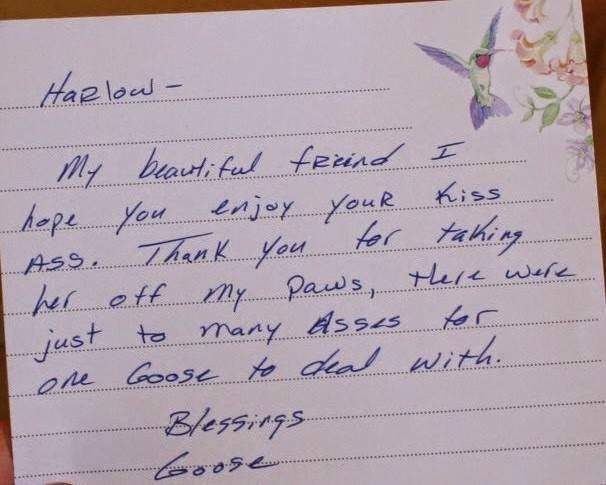 Harlow -
My beautiful friend I
hope you enjoy your Kiss
Ass. Thank you for taking
her off my paws, there were
just to many Asses for
one Goose to deal with.
Blessings
Goose